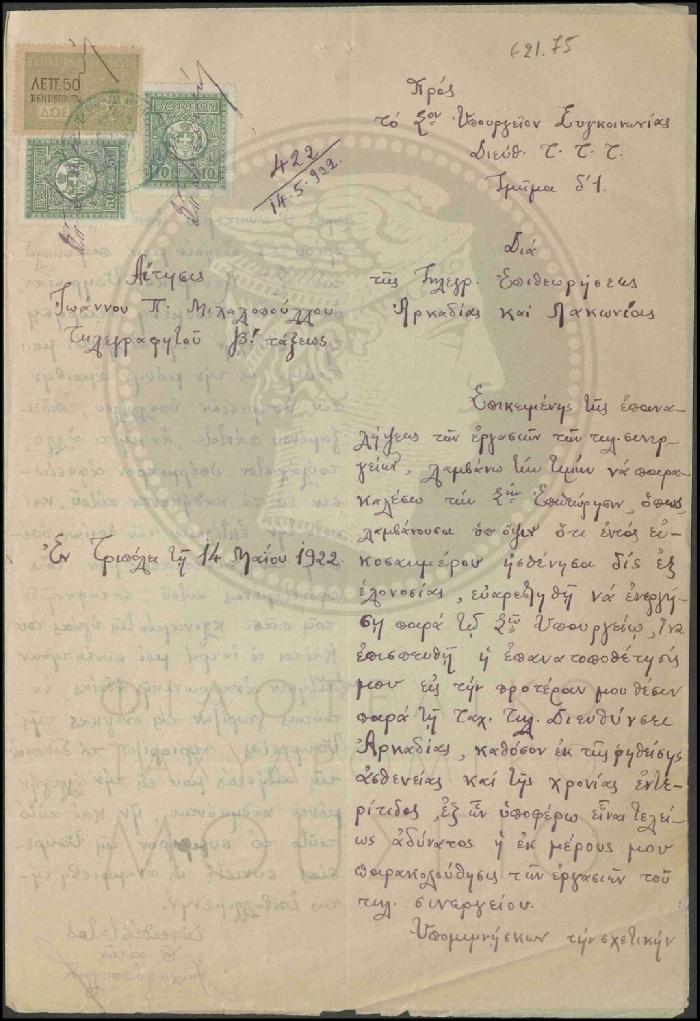 621.75
ΛΕΠ. 50
ΠΕΝΤΗΚΟΝΤΑ
ΒΑΣΙΛΕΙΟΝ
10 10
50 50
422
14.5.922.
Πρός
τὸ Σὸν Ὑπουργεῖον Συγκοινωνίας
Διεύθ. Τ. Τ. Τ.
Τμῆμα δ'1.
Διὰ
τῆς Τηλεγρ. Ἐπιθεωρήσεως
Ἀρκαδίας καὶ Λακωνίας
Αἴτησις
Ἰωάννου Π. Μιχαλοπούλλου
Τηλεγραφητοῦ β' τάξεως
Ἐν Τριπόλει τῇ 14 Μαΐου 1922.
Ἐπικειμένης τῆς ἐπανα-
λήψεως τῶν ἐργασιῶν τῶν τηλ. συνερ-
γείων, λαμβάνω τὴν τιμὴν νὰ παρα-
καλέσω τὴν Σὴν Ἐπιθεώρησιν, ὅπως
λαμβάνουσα ὑπ' ὄψιν ὅτι ἐντὸς εἰ-
κοσαημέρου ἠσθένησα δὶς ἐξ
ἑλονοσίας, εὐαρεστηθῇ νὰ ἐνεργή-
σῃ παρὰ τῷ Σῷ Ὑπουργείῳ, ἵνα
ἐπισπευθῇ ἡ ἐπανατοποθέτησίς
μου εἰς τὴν προτέραν μου θέσιν
παρὰ τῇ Ταχ. Τηλ. Διευθύνσει
Ἀρκαδίας, καθόσον ἐκ τῆς ῥηθείσης
ἀσθενείας καὶ τῆς χρονίας ἐντε-
ρίτιδος, ἐξ ὧν ὑποφέρω εἶναι τελεί-
ως ἀδύνατος ἡ ἐκ μέρους μου
παρακολούθησις τῶν ἐργασιῶν τοῦ
τηλ. συνεργείου.
Ὑπομιμνήσκων τὴν σχετικὴν